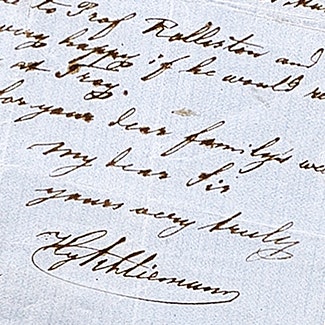 to Prof Rolleston and
very happy if he would re
at Troy.
for your dear family's we
My dear Sir
yours very truly
Hy Schliemann